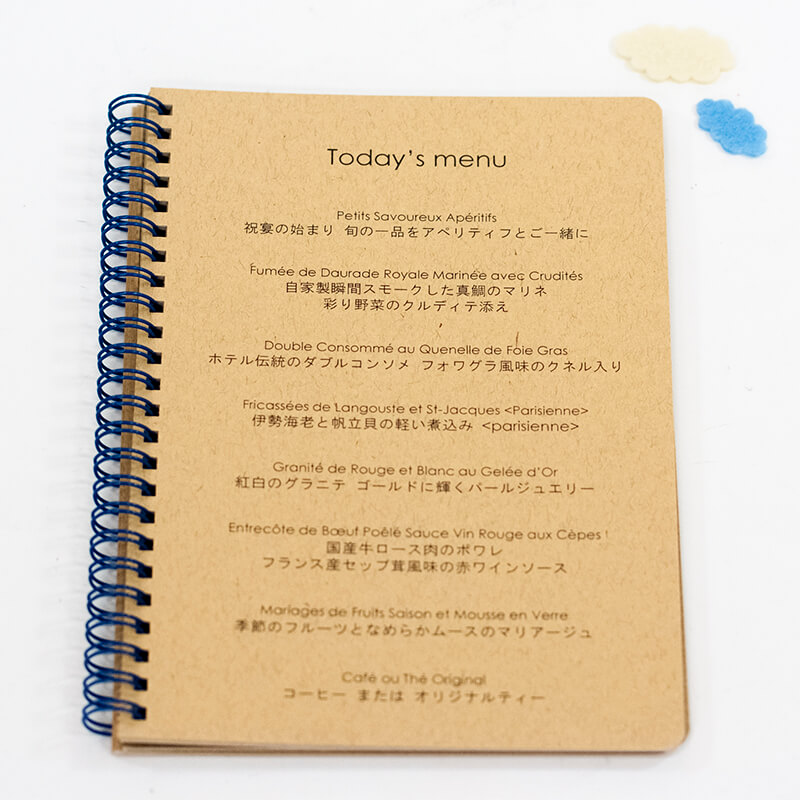 Today's menu
Petits Savoureux Apéritifs
祝宴の始まり 旬の一品をアペリティフとご一緒に
Fumée de Daurade Royale Marinée avec Crudités
自家製瞬間スモークした真鯛のマリネ
彩り野菜のクルディテ添え
Double Consommé au Quenelle de Foie Gras
ホテル伝統のダブルコンソメ フォワグラ風味のクネル入り
Fricassées de Langouste et St-Jacques <Parisienne>
伊勢海老と帆立貝の軽い煮込み <parisienne>
Granité de Rouge et Blanc au Gelée d'Or
紅白のグラニテ ゴールドに輝くパールジュエリー
Entrecôte de Bœuf Poêlé Sauce Vin Rouge aux Cèpes !
国産牛ロース肉のポワレ
フランス産セップ茸風味の赤ワインソース
Mariages de Fruits Saison et Mousse en Verre
季節のフルーツとなめらかムースのマリアージュ
Café ou Thé Original
コーヒー または オリジナルティー